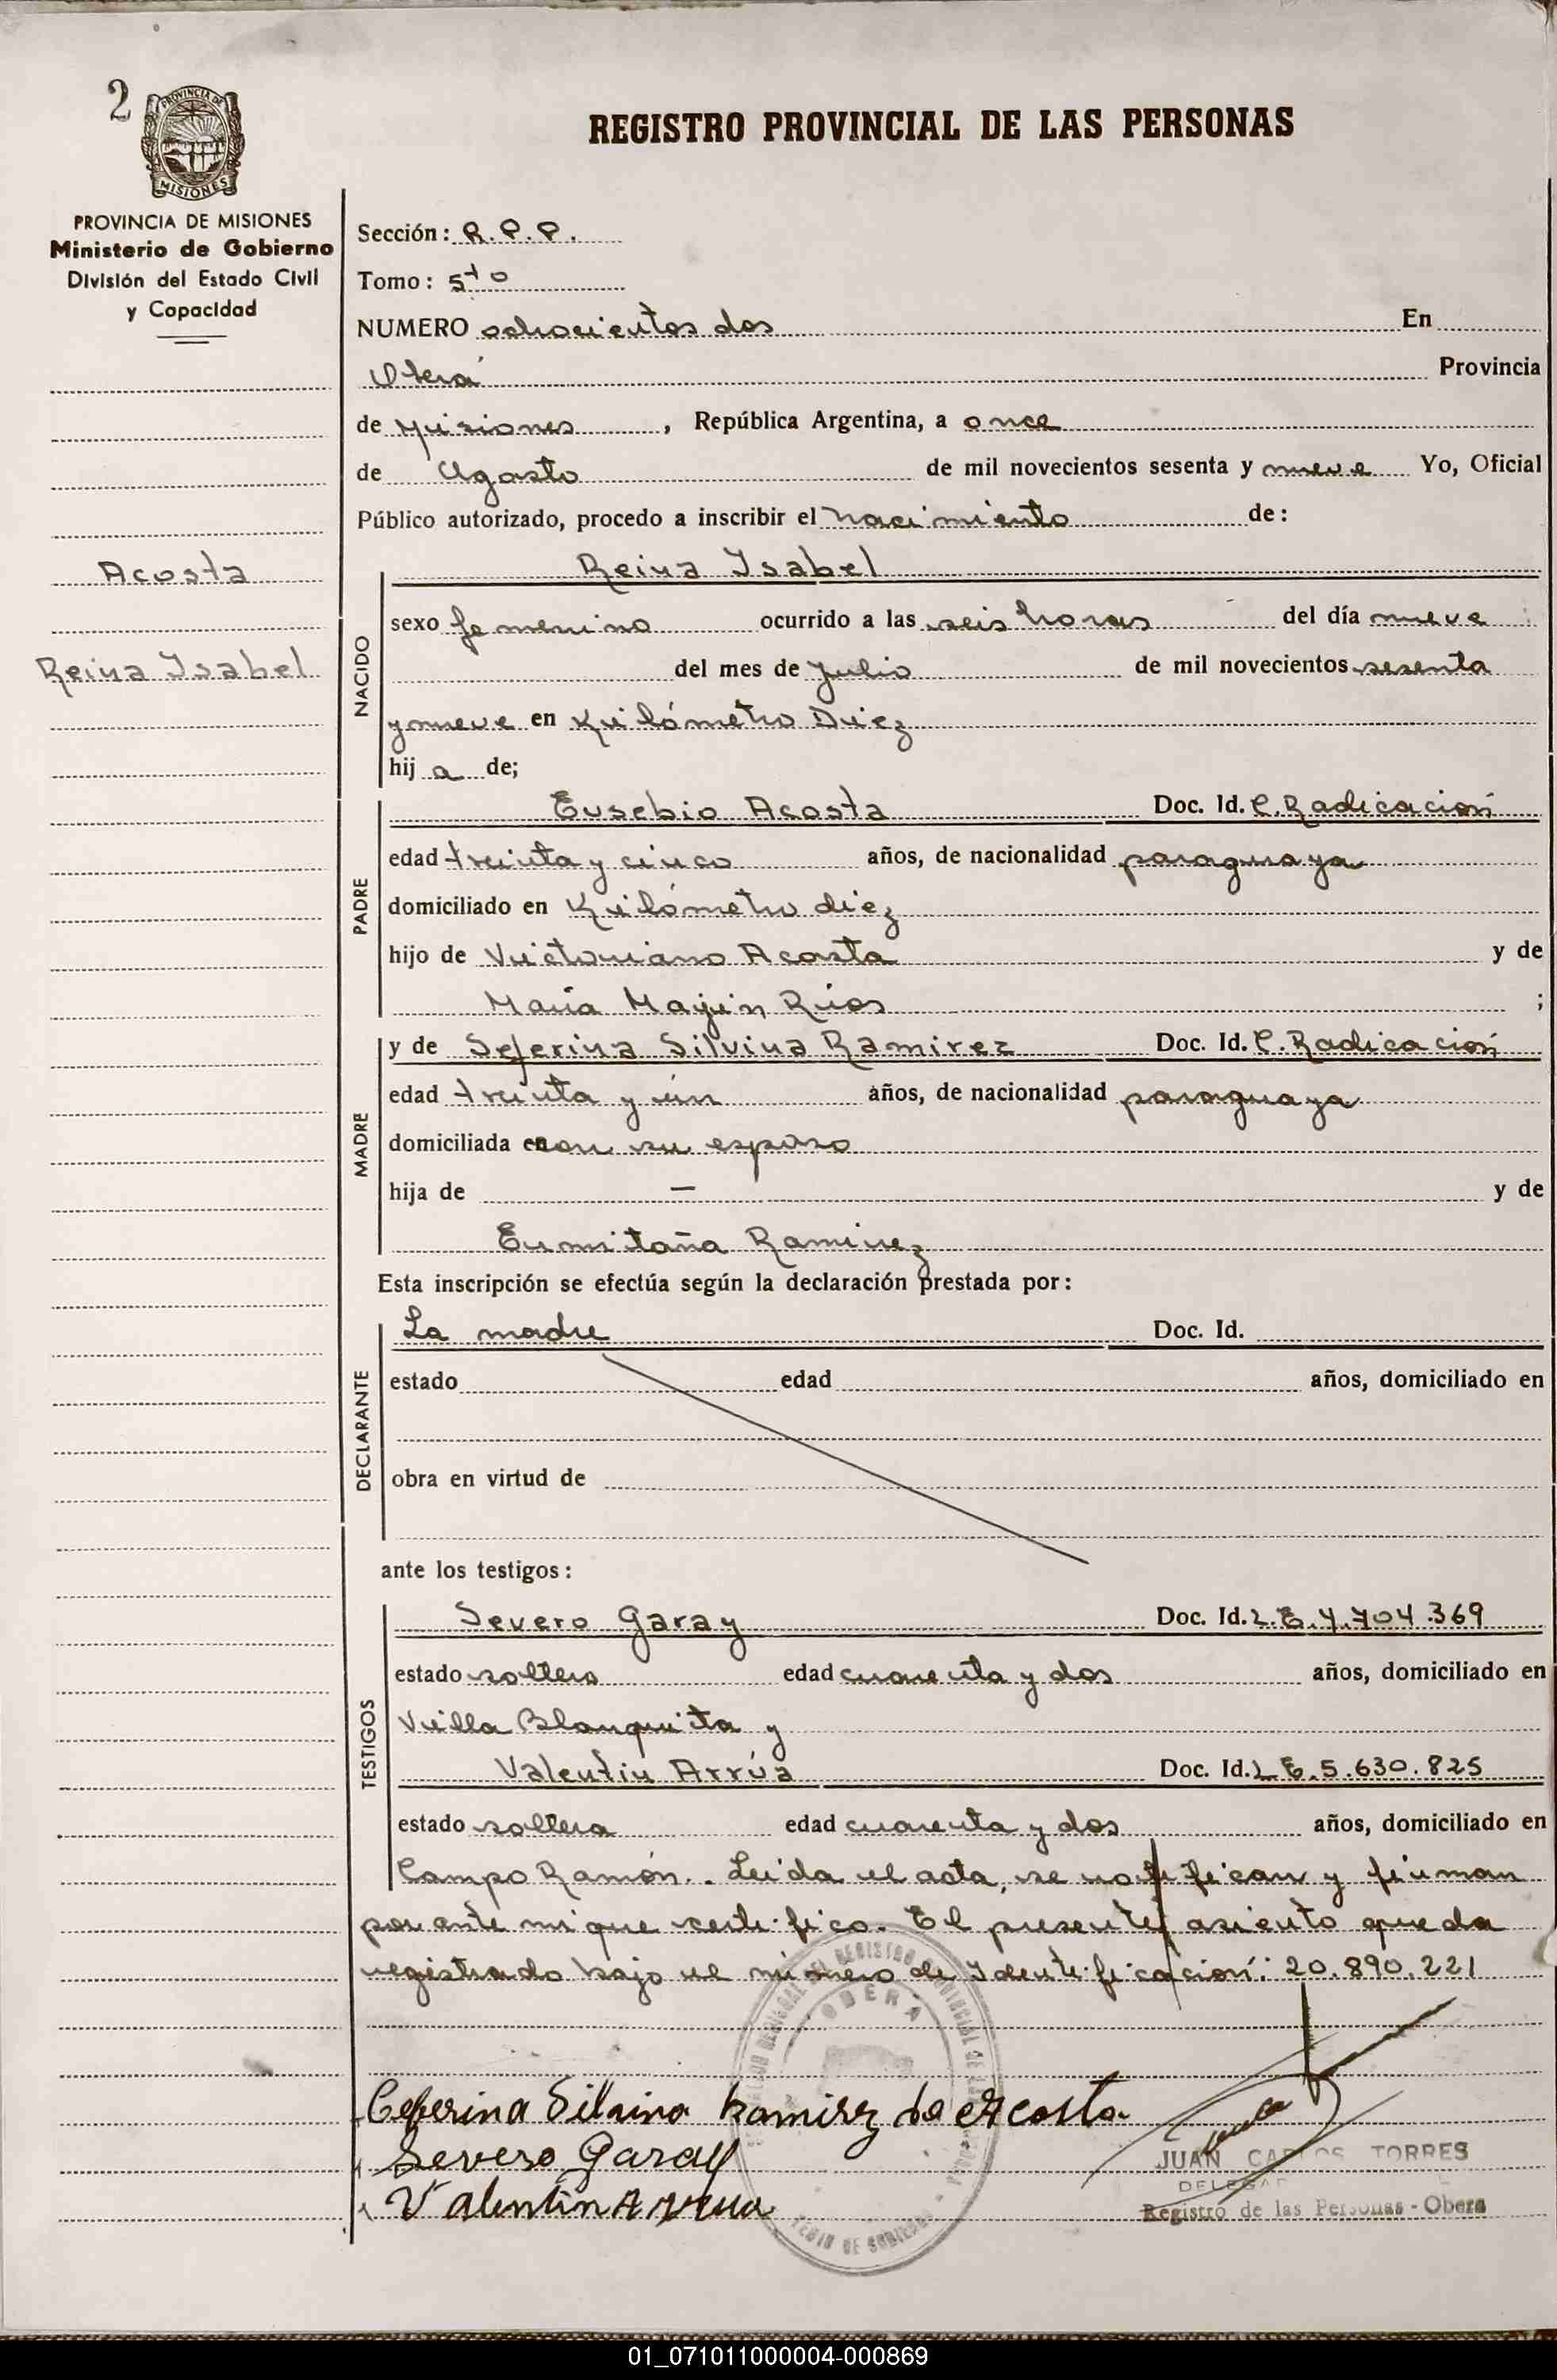 2
PROVINCIA DE
MISIONES
REGISTRO PROVINCIAL DE LAS PERSONAS
PROVINCIA DE MISIONES
Ministerio de Gobierno
División del Estado Civil
y Capacidad
Acosta
Reina Isabel
Sección: R.P.P.
Tomo: 5to
NUMERO ochocientos dos En
Oberá Provincia
de Misiones, República Argentina, a once
de Agosto de mil novecientos sesenta y nueve Yo, Oficial
Público autorizado, procedo a inscribir el nacimiento de:
NACIDO
Reina Isabel
sexo femenino ocurrido a las seis horas del día nueve
del mes de Julio de mil novecientos sesenta
y nueve en Kilómetro Diez
hij a de;
PADRE
Eusebio Acosta Doc. Id. C. Radicación
edad treinta y cinco años, de nacionalidad paraguaya
domiciliado en Kilómetro diez
hijo de Victoriano Acosta y de
María Ríos ;
MADRE
y de Seferina Silvina Ramirez Doc. Id. C. Radicación
edad treinta y ún años, de nacionalidad paraguaya
domiciliada con su esposo
hija de — y de
Ramirez
Esta inscripción se efectúa según la declaración prestada por:
DECLARANTE
La madre Doc. Id.
estado edad años, domiciliado en
obra en virtud de
ante los testigos:
TESTIGOS
Severo Garay Doc. Id. L.E. 4.704.369
estado soltero edad cuarenta y dos años, domiciliado en
Villa Blanquita y
Valentin Arrúa Doc. Id. L.E. 5.630.825
estado soltera edad cuarenta y dos años, domiciliado en
Campo Ramón.. Leida el acta, se notifican y firman
por ante mi que certifico. El presente asiento queda
registrado bajo el número de Identificación: 20.890.221
OBERA
Ceferina Silvina Ramirez de Acosta
Severo Garay
Valentin Arrua
JUAN CARLOS TORRES
Registro de las Personas - Obera
01_071011000004-000869